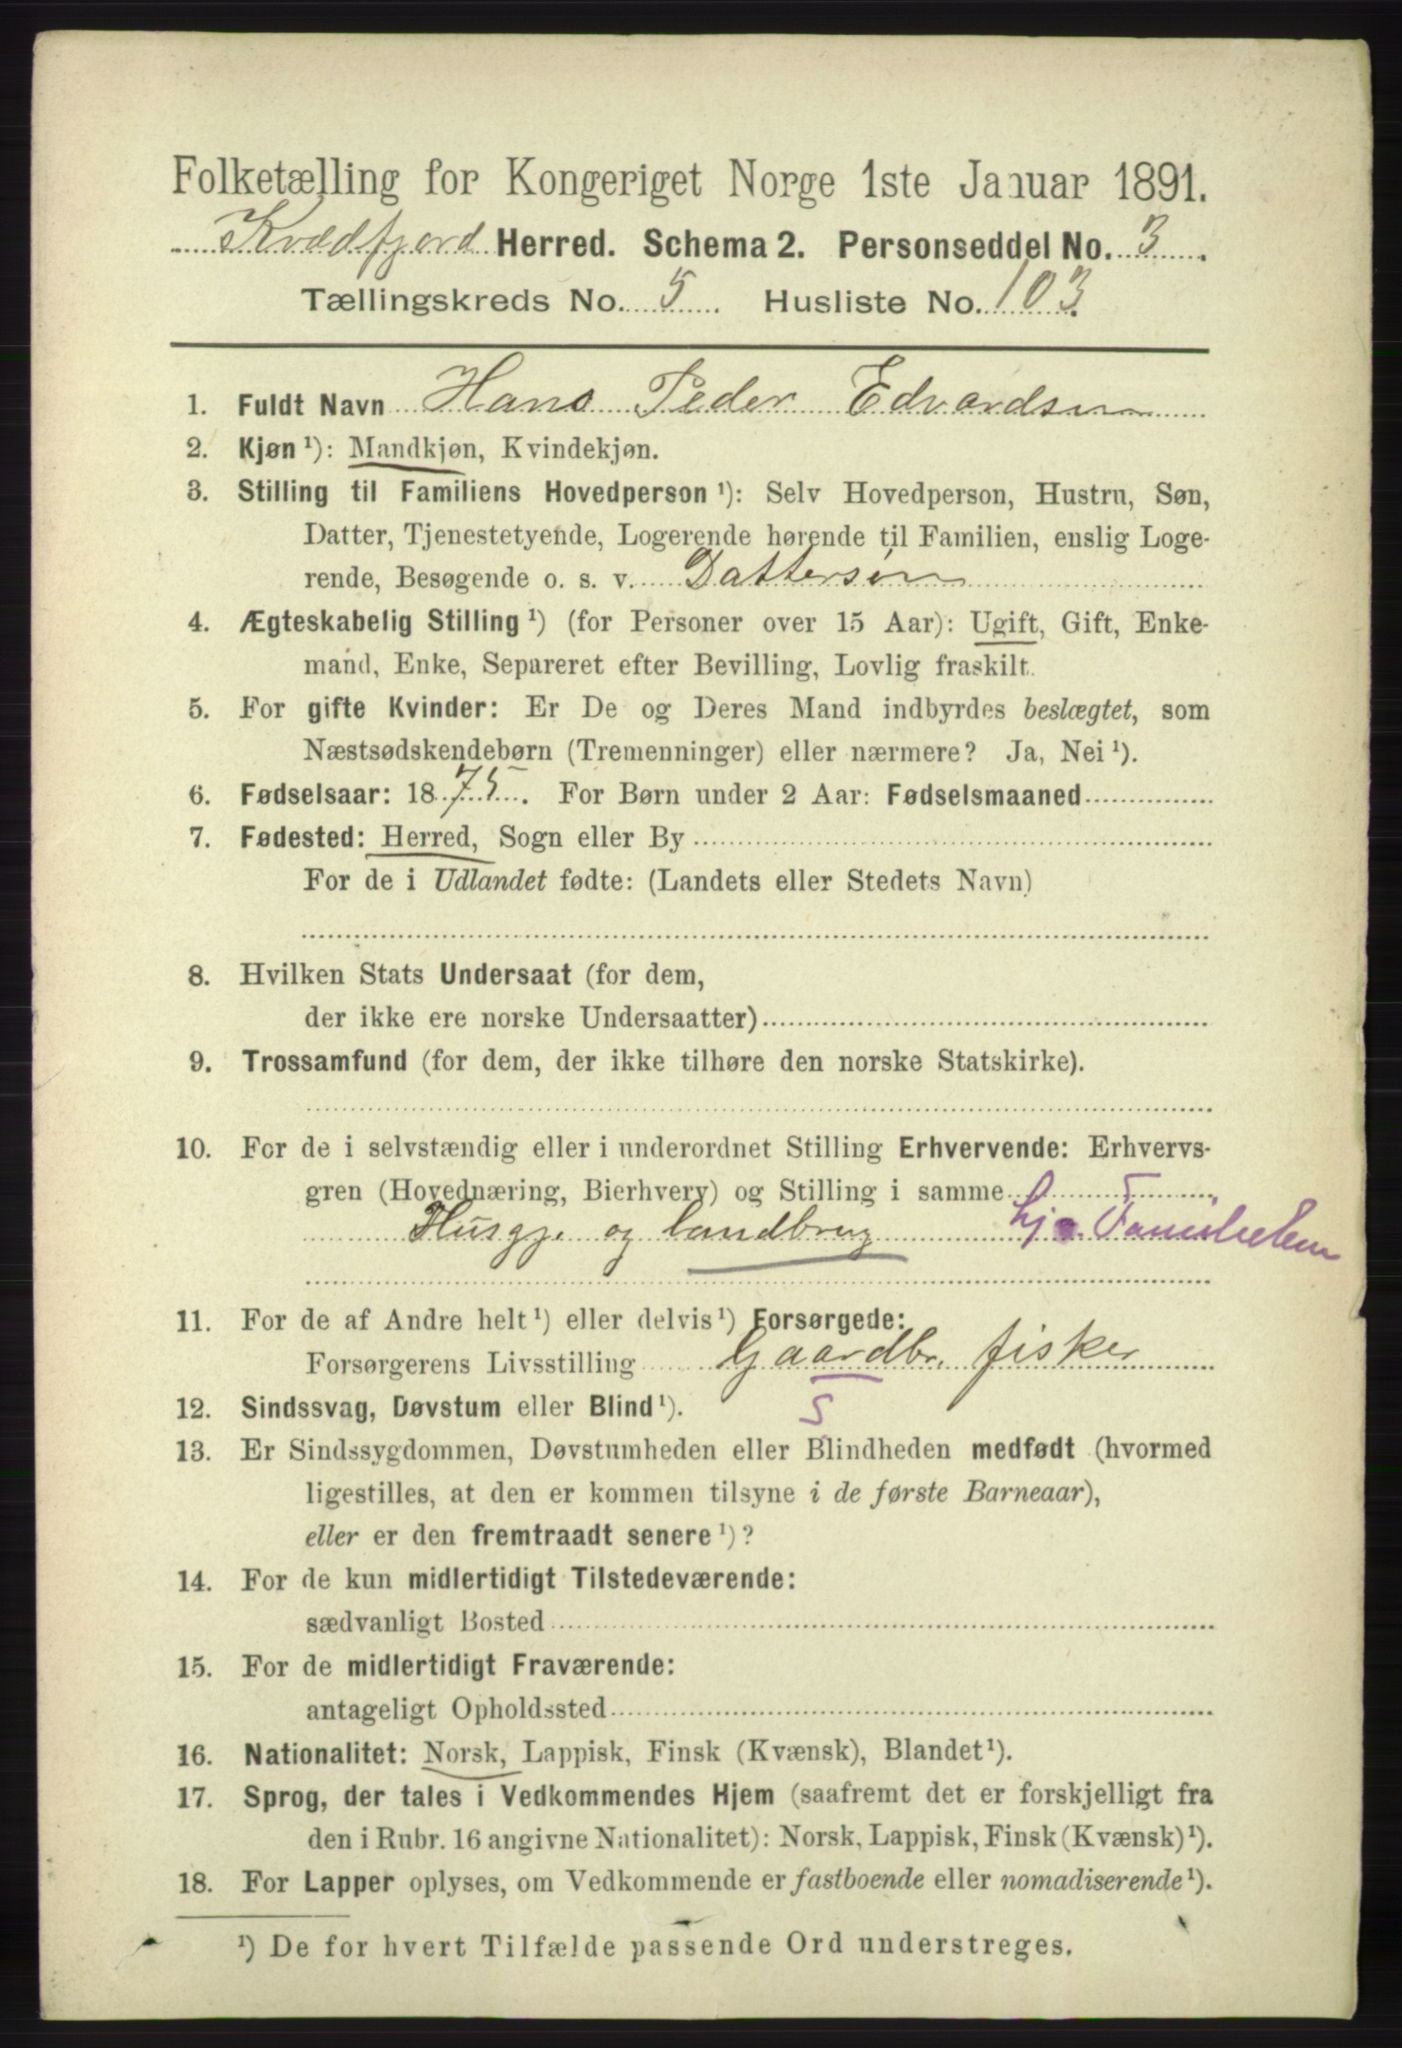 Folketælling for Kongeriget Norge 1ste Januar 1891.
Kvædfjord Herred. Schema 2. Personseddel No. 3.
Tællingskreds No. 5. Husliste No. 103.
1. Fuldt Navn Hans Peder Edvardsen
2. Kjøn ¹): Mandkjøn, Kvindekjøn.
3. Stilling til Familiens Hovedperson ¹): Selv Hovedperson, Hustru, Søn,
Datter, Tjenestetyende, Logerende hørende til Familien, enslig Loge-
rende, Besøgende o. s. v. Dattersøn
4. Ægteskabelig Stilling ¹) (for Personer over 15 Aar): Ugift, Gift, Enke-
mand, Enke, Separeret efter Bevilling, Lovlig fraskilt.
5. For gifte Kvinder: Er De og Deres Mand indbyrdes beslægtet, som
Næstsødskendebørn (Tremenninger) eller nærmere? Ja, Nei ¹).
6. Fødselsaar: 1875. For Børn under 2 Aar: Fødselsmaaned
7. Fødested: Herred, Sogn eller By
For de i Udlandet fødte: (Landets eller Stedets Navn)
8. Hvilken Stats Undersaat (for dem,
der ikke ere norske Undersaatter)
9. Trossamfund (for dem, der ikke tilhøre den norske Statskirke).
10. For de i selvstændig eller i underordnet Stilling Erhvervende: Erhvervs-
gren (Hovednæring, Bierhverv) og Stilling i samme
Husgj. og landbrug hj. Familielem
11. For de af Andre helt ¹) eller delvis ¹) Forsørgede:
Forsørgerens Livsstilling Gaardbr. fisker
12. Sindssvag, Døvstum eller Blind ¹). S
13. Er Sindssygdommen, Døvstumheden eller Blindheden medfødt (hvormed
ligestilles, at den er kommen tilsyne i de første Barneaar),
eller er den fremtraadt senere ¹)?
14. For de kun midlertidigt Tilstedeværende:
sædvanligt Bosted
15. For de midlertidigt Fraværende:
antageligt Opholdssted
16. Nationalitet: Norsk, Lappisk, Finsk (Kvænsk), Blandet ¹).
17. Sprog, der tales i Vedkommendes Hjem (saafremt det er forskjelligt fra
den i Rubr. 16 angivne Nationalitet): Norsk, Lappisk, Finsk (Kvænsk) ¹).
18. For Lapper oplyses, om Vedkommende er fastboende eller nomadiserende ¹).
¹) De for hvert Tilfælde passende Ord understreges.